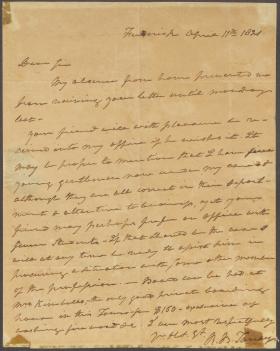 Frederick April 11th 1821
Dear Sir
My absence from home prevented me
from receiving your letter until monday
last.
your friend will with pleasure be re-
ceived into my office if he wishes it. It
may be proper to mention that I have five
young gentlemen now under my care &
although they are all correct in their deport-
ment & attentive to business, yet your
friend may perhaps prefer an office with
fewer students. If that should be the case I
will at any time be ready to assist him in
procuring a situation with some other member
of the profession — Board can be had at
Mrs Kimboll's, the only good private boarding
house in this Town for $150 — exclusive of
washing fire wood &c. I am most respectfully
yr obt St.
R. B. Taney